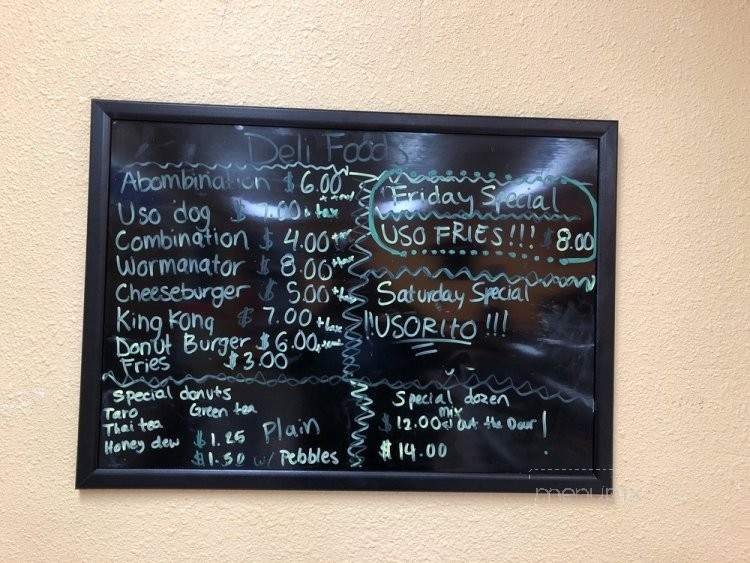 Deli Foods
Abombination $ 6.00 + tax
Uso dog $ .00 + tax
Combination $ 4.00 + tax
Wormanator $ 8.00 + tax
Cheeseburger $ 5.00 + tax
King Kong $ 7.00 + tax
Donut Burger $ 6.00 + tax
Fries $3.00
Special donuts
Taro Green tea
Thai tea
Honey dew $1.25 Plain
$1.50 w/ Pebbles
Friday Special
USO FRIES!!! $8.00
Saturday Special
!!USORITO!!!
Special dozen
mix
$12.00 out the Door!
$14.00
menu